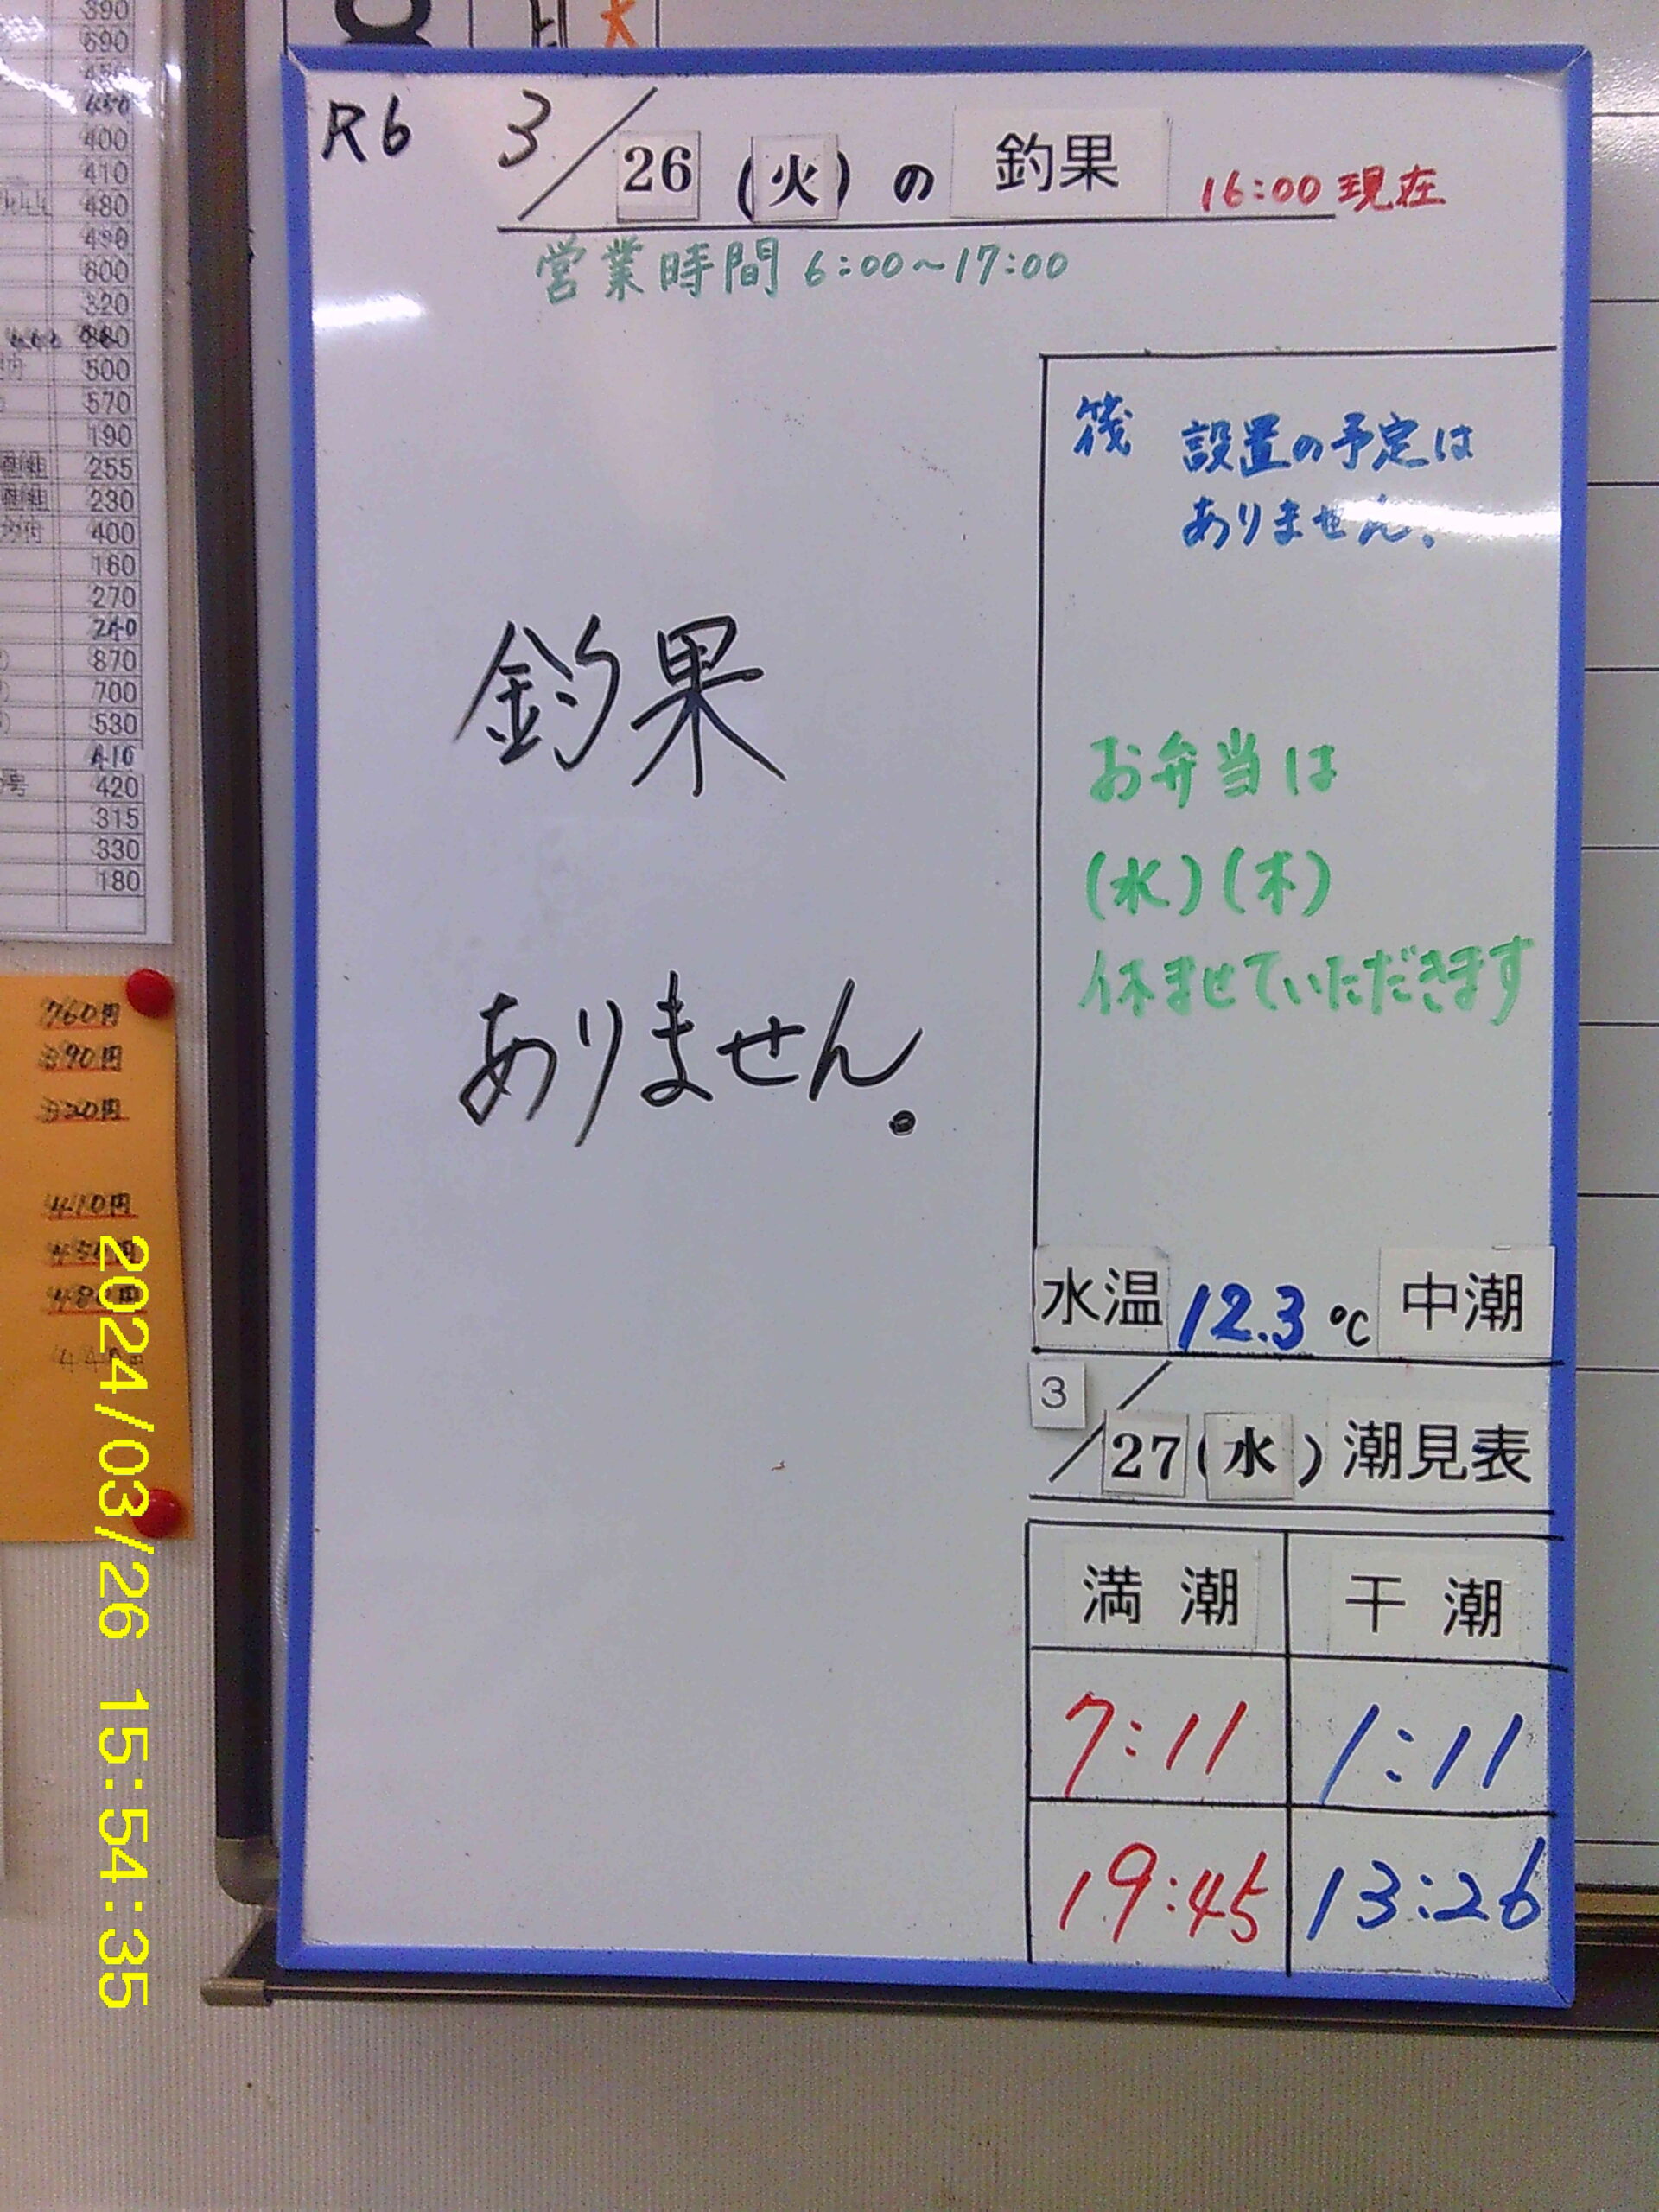 R6 3/26(火)の釣果 16:00現在
営業時間 6:00~17:00
釣果
ありません。
筏 設置の予定は
ありません。
お弁当は
(水)(木)
休ませていただきます
水温 12.3℃ 中潮
3/27(水)潮見表
満潮 干潮
7:11 1:11
19:45 13:26
390
690
450
400
410
480
490
600
320
500
570
190
255
230
400
160
270
240
870
700
530
410
号 420
315
330
180
760円
390円
320円
410円
450円
480円
2024/03/26 15:54:35